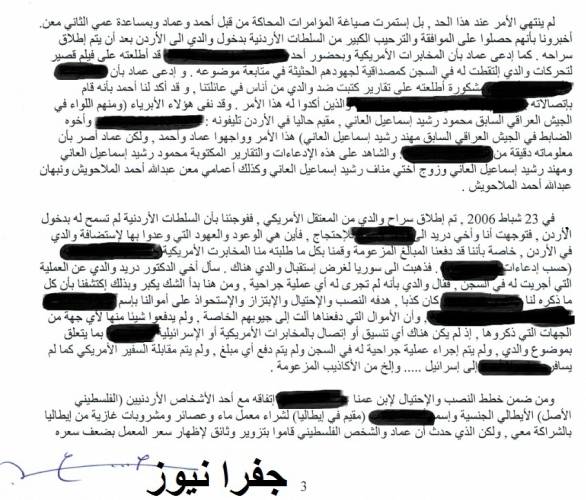 لم ينتهي الأمر عند هذا الحد , بل إستمرت صياغة المؤامرات المحاكة من قبل أحمد وعماد وبمساعدة عمي الثاني معن.
أخبرونا بأنهم حصلوا على الموافقة والترحيب الكبير من السلطات الأردنية بدخول والدي الى الأردن بعد أن يتم إطلاق
سراحه . كما إدعى عماد بأن المخابرات الأمريكية وبحضور أحد قد اطلعته على فيلم قصير
لتحركات والدي إلتقطت له في السجن كمصداقية لجهودهم الحثيثة في متابعة موضوعه . و إدعى عماد بأن
مشكورة اطلعته على تقارير كتبت ضد والدي من أناس في عائلتنا , و قد أكد لنا أحمد بأنه قام
بإتصالاته الذين أكدوا له هذا الأمر . وقد نفى هؤلاء الأبرياء (ومنهم اللواء في
الجيش العراقي السابق محمود رشيد إسماعيل العاني , مقيم حاليا في الأردن تليفونه : وأخوه
الضابط في الجيش العراقي السابق مهند رشيد إسماعيل العاني) هذا الأمر وواجهوا عماد وأحمد , ولكن عماد أصر بأن
معلوماته دقيقة من . والشاهد على هذه الإدعاءات والتقارير المكتوبة محمود رشيد إسماعيل العاني
ومهند رشيد إسماعيل العاني وزوج أختي مناف رشيد إسماعيل العاني وكذلك أعمامي معن عبدالله أحمد الملاحويش ونبهان
عبدالله أحمد الملاحويش .
في 23 شباط 2006 , تم إطلاق سراح والدي من المعتقل الأمريكي , ففوجئنا بأن السلطات الأردنية لم تسمح له بدخول
الأردن , فتوجهت أنا وأخي دريد الى للإحتجاج , فأين هي الوعود والعهود التي وعدوا بها لإستضافة والدي
في الأردن , خاصة بأننا قد دفعنا المبالغ المزعومة وقمنا بكل ما طلبته منا المخابرت الأمريكية
(حسب إدعاءات . فذهبنا الى سوريا لغرض إستقبال والدي هناك . سأل أخي الدكتور دريد والدي عن العملية
التي أجريت له في السجن , فقال والدي بأنه لم تجرى له أي عملية جراحية , ومن هنا بدأ الشك يكبر وبذلك إكتشفنا بأن كل
ما ذكره لنا كان كذبا , هدفه النصب والإحتيال والإبتزاز والإستحواذ على أموالنا بإسم
, وأن الأموال التي دفعناها آلت إلى جيوبهم الخاصة . ولم يدفعوا شيئا منها لأي جهة من
الجهات التي ذكروها , إذ لم يكن هناك أي تنسيق أو إتصال بالمخابرات الأمريكية أو الإسرائيلية بما يتعلق
بموضوع والدي , ولم يتم إجراء عملية جراحية له في السجن ولم يتم دفع أي مبلغ , ولم يتم مقابلة السفير الأمريكي كما لم
يسافر إلى إسرائيل ..... وإلخ من الأكاذيب المزعومة .
ومن ضمن خطط النصب والإحتيال لإبن عمنا إتفاقه مع أحد الأشخاص الأردنيين (الفلسطيني
الأصل) الأيطالي الجنسية وإسمه (مقيم في إيطاليا) لشراء معمل ماء وعصائر ومشروبات غازية من إيطاليا
بالشراكة معي , ولكن الذي حدث أن عماد والشخص الفلسطيني قاموا بتزوير وثائق لإظهار سعر المعمل بضعف سعره
جفرا نيوز
3